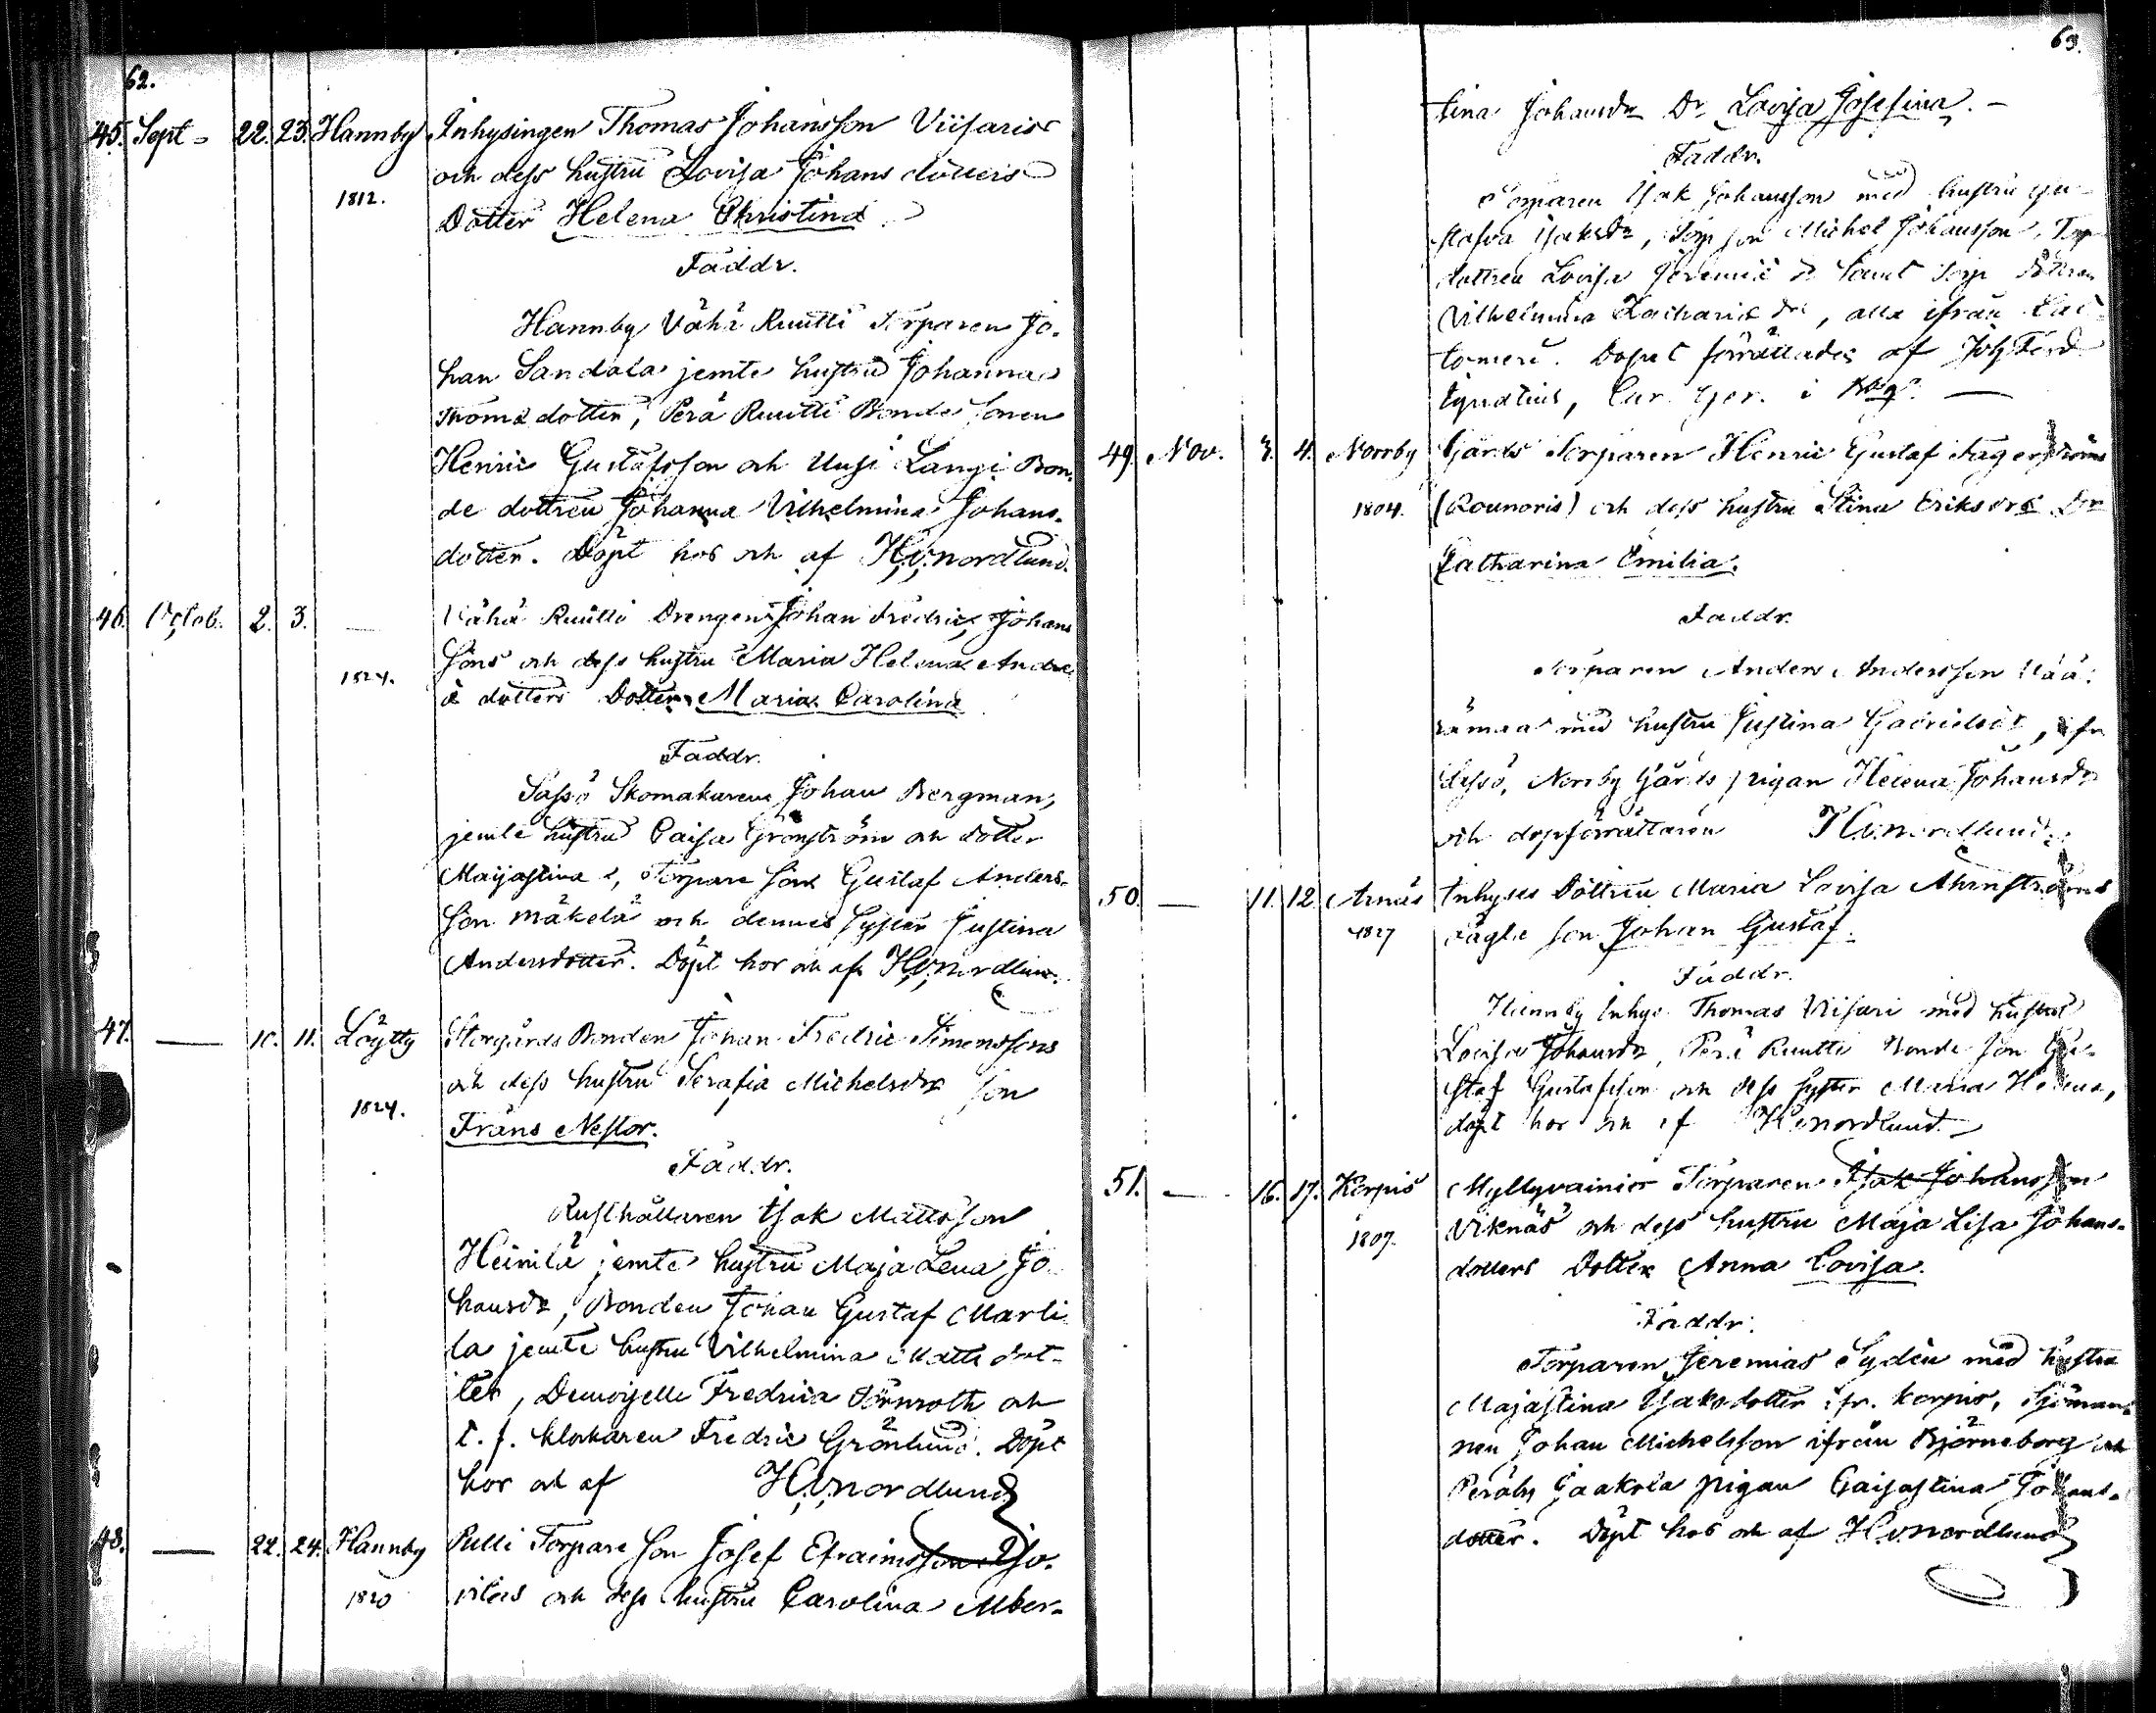 62.
45. Sept 22. 23. Hannby Inhysingen Thomas Johansson Viisaris
och dess hustru Lovisa Johans dotters
1812.
Dotter Helena Christina
Faddr.
Hannby Vähä Ruutti Torparen Jo-
han Sandala jemte hustru Johanna
Thomæ dotter, Perä Ruutti Bonde sonen
Henric Gustafsson och Uusi Langi Bon-
de dottren Johanna Vilhelmina Johans-
dotter. Döpt hos och af H.v.nordlund.
46. Octob. 2. 3. — Vähä Ruutti Drengen Johan Fredric Johans
sons och dess hustru Maria Helena Andre
1824.
æ dotters Dotter Maria Carolina
Faddr.
Sassi Skomakaren Johan Bergman,
jemte hustru Caisa Grönström och dotter
Maijastina, Torpare son Gustaf Anders-
son Mäkelä och dennes syster Justina
Andersdotter. Döpt hos och af H.v.nordlund.
47. — 10. 11. Löytty Storgårds Bonden Johan Fredric Simonssons
och dess hustru Serafia Michelsdrs son
1824.
Frans Nestor.
Faddr.
Rusthållaren Isak Mattsson
Heinilä jemte hustru Maja Lena Jo-
hansdr, Bonden Johan Gustaf Marti
la jemte hustru Vilhelmina Matts dot-
ter, Demoiselle Fredrica Törnroth och
t. f. klockaren Fredric Grönlund. Döpt
hos och af H.v.nordlund
48. — 22. 24. Hannby Pelli Torpare son Josef Efraimsson Iso-
1820
vilas och dess hustru Carolina Alber-
63.
tina Johansdrs Dr Lovisa Josefina. —
Faddr.
Torparen Isak Johansson med hustru Gu-
stafva Isaksdr, Torp son Michel Johansson, Torp
dottren Lovisa Jeremiæ dr samt Torp dottren
Vilhelmina Zachariæ dr, alla ifrån
Dopet förrättades af Joh Ferd
Ignatius, Cur. ger. i —
49. Nov. 3. 4. Norrby Gårds Torparen Henric Gustaf Fagerströms
1804. (Rounoris) och dess hustru Stina Eriksdrs Dr
Catharina Emilia.
Faddr.
Torparen Anders Andersson Vää-
rämaa med hustru Justina Gabrielsdr, ifr
Sassi, Norrby Gårds pigan Helena Johansdr
och dopförrättaren H.v.nordlund.
50. — 11. 12. Arnäs Inhyses Dottren Maria Lovisa Ahrnströms
1827 oägta son Johan Gustaf.
Faddr.
Hannby Inhys Thomas Viisari med hustru
Lovisa Johansdr, Perä Ruutti Bonde son Gu-
staf Gustafsson och dess syster Maria Helena,
döpt hos och af H.v.nordlund
51. — 16. 17. Korpis Myllyvainior Torparen Isak Johansson
1807.
Viknäs och dess hustru Maja Lisa Johans-
dotters Dotter Anna Lovisa.
Faddr.
Torparen Jeremias Sydén med hustru
Majastina Isaksdotter ifr. Korpis, Sjöman-
nen Johan Michelsson ifrån Björneborg och
Peräby Jaakola pigan Caisastina Johans-
dotter. Döpt hos och af H.v.nordlund